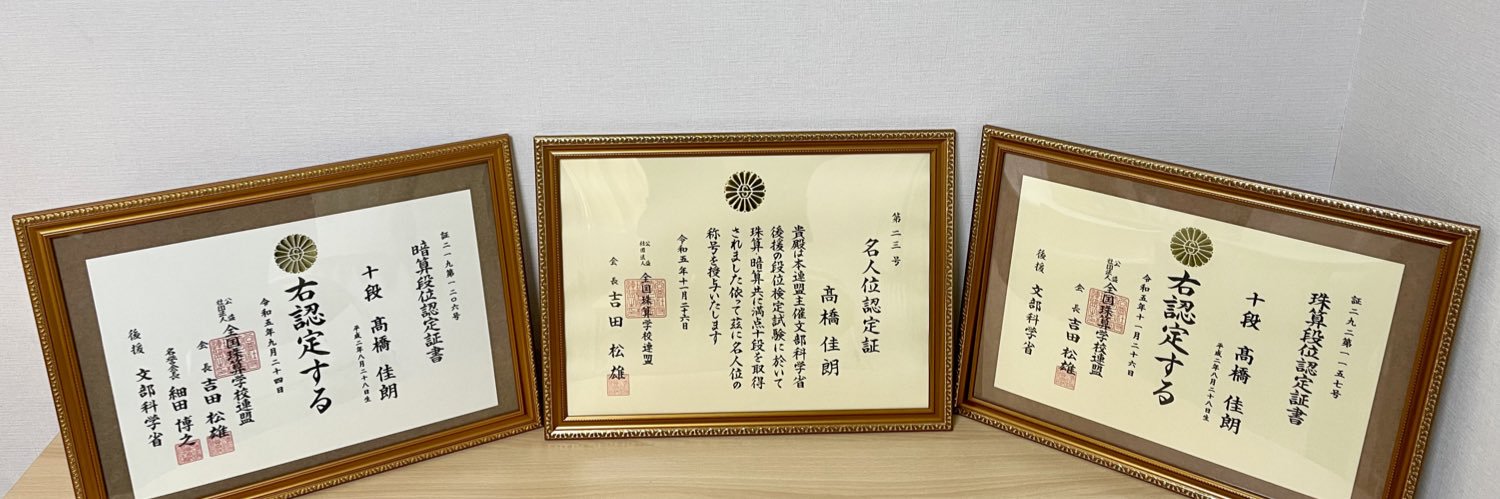 証二一九第一二〇六号
暗算段位認定証書
十段 髙橋 佳朗
平成二年八月二十八日生
右認定する
令和五年九月二十四日
公益社団法人 全国珠算学校連盟
会長 吉田 松雄
名誉会長 細田 博之
後援 文部科学省
第二三号
名人位認定証
髙橋 佳朗
貴殿は本連盟主催文部科学省
後援の段位検定試験に於いて
珠算・暗算共に満点十段を取得
されました依って茲に名人位の
称号を授与いたします
令和五年十一月二十六日
公益社団法人 全国珠算学校連盟
会長 吉田 松雄
証二九二第一一五七号
珠算段位認定証書
十段 髙橋 佳朗
平成二年八月二十八日生
右認定する
令和五年十一月二十六日
公益社団法人 全国珠算学校連盟
会長 吉田 松雄
後援 文部科学省